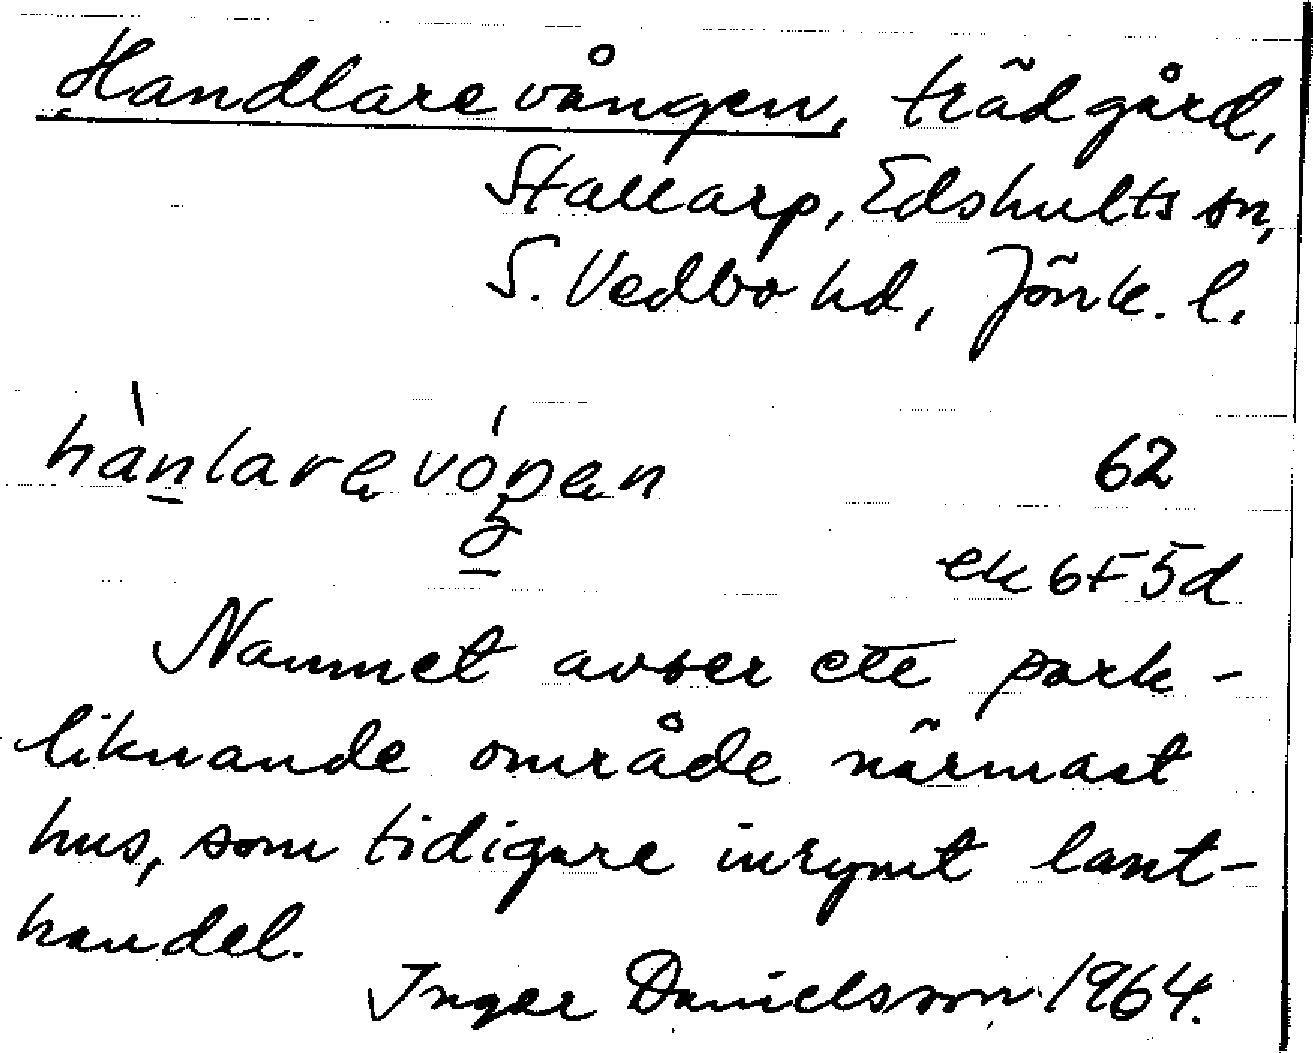 Handlarevången, trädgård,
Stallarp, Edshults sn,
S. Vedbo hd, Jönk. l.
62
ek 6F5d
Namnet avser ett park-
liknande område närmast
hus, som tidigare inrymt lant-
handel.
Inger Danielsson 1964.